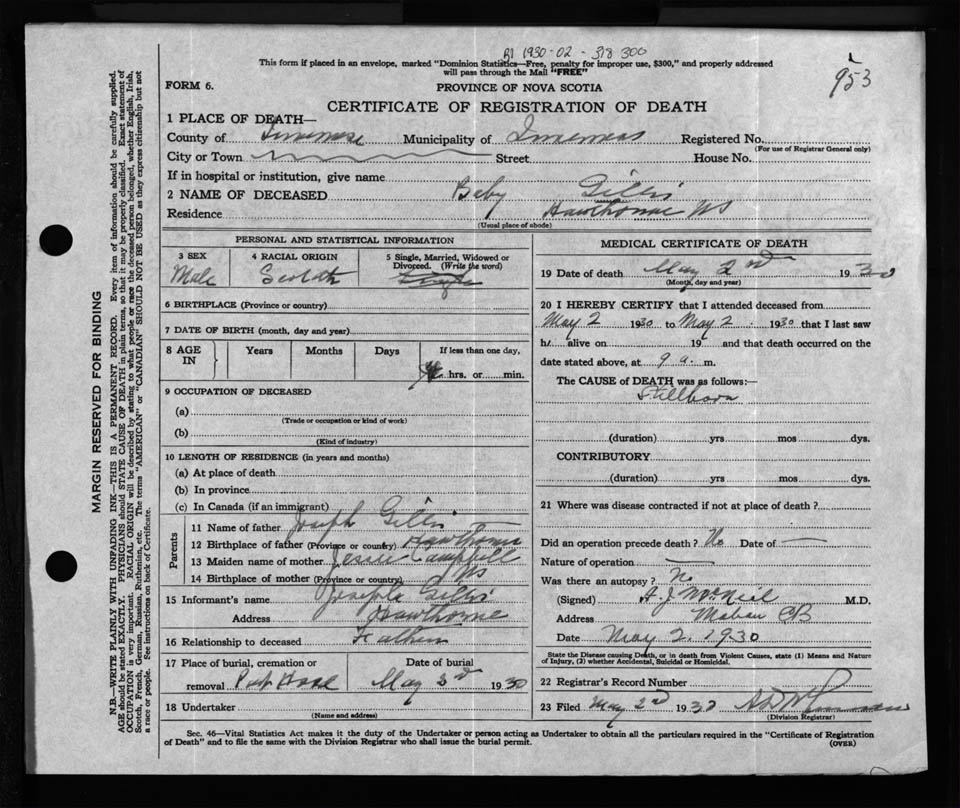 RI 1930-02-318300
953
This form if placed in an envelope, marked "Dominion Statistics—Free, penalty for improper use, $300," and properly addressed
will pass through the Mail "FREE"
FORM 6.
PROVINCE OF NOVA SCOTIA
CERTIFICATE OF REGISTRATION OF DEATH
1 PLACE OF DEATH—
County of Inverness Municipality of Inverness Registered No.
(For use of Registrar General only)
City or Town Street House No.
If in hospital or institution, give name
2 NAME OF DECEASED Baby Gillis
Residence Hawthorne NS
(Usual place of abode)
PERSONAL AND STATISTICAL INFORMATION
3 SEX 4 RACIAL ORIGIN 5 Single, Married, Widowed or
Divorced. (Write the word)
Male Scotch Single
6 BIRTHPLACE (Province or country)
7 DATE OF BIRTH (month, day and year)
8 AGE IN Years Months Days If less than one day,
hrs. or min.
9 OCCUPATION OF DECEASED
(a)
(Trade or occupation or kind of work)
(b)
(Kind of industry)
10 LENGTH OF RESIDENCE (in years and months)
(a) At place of death
(b) In province
(c) In Canada (if an immigrant)
Parents
11 Name of father Joseph Gillis
12 Birthplace of father (Province or country) Hawthorne
13 Maiden name of mother Jessie Campbell
14 Birthplace of mother (Province or country) NS
15 Informant's name Joseph Gillis
Address Hawthorne
16 Relationship to deceased Father
17 Place of burial, cremation or Date of burial
removal May 1930
18 Undertaker
(Name and address)
MEDICAL CERTIFICATE OF DEATH
19 Date of death May 2nd 1930
(Month, day and year)
20 I HEREBY CERTIFY that I attended deceased from
May 2 1930 to May 2 1930 that I last saw
h/ alive on 19 and that death occurred on the
date stated above, at 9 a. m.
The CAUSE of DEATH was as follows:—
Stillborn
(duration) yrs mos dys.
CONTRIBUTORY
(duration) yrs mos dys.
21 Where was disease contracted if not at place of death?
Did an operation precede death? No Date of —
Nature of operation —
Was there an autopsy? No
(Signed) A J McNeil M.D.
Address Mabou CB
Date May 2. 1930
State the Disease causing Death, or in death from Violent Causes, state (1) Means and Nature
of Injury, (2) whether Accidental, Suicidal or Homicidal.
22 Registrar's Record Number
23 Filed May 2nd 1930
(Division Registrar)
Sec. 46—Vital Statistics Act makes it the duty of the Undertaker or person acting as Undertaker to obtain all the particulars required in the "Certificate of Registration
of Death" and to file the same with the Division Registrar who shall issue the burial permit.
(OVER)
MARGIN RESERVED FOR BINDING
N.B.—WRITE PLAINLY WITH UNFADING INK—THIS IS A PERMANENT RECORD. Every item of information should be carefully supplied.
AGE should be stated EXACTLY. PHYSICIANS should STATE CAUSE OF DEATH in plain terms, so that it may be properly classified. Exact statement of
OCCUPATION is very important. RACIAL ORIGIN will be described by stating to what people or race the deceased person belonged, whether English, Irish,
Scotch, French, German, Russian, Ruthenian, etc. The terms "AMERICAN" or "CANADIAN" SHOULD NOT BE USED as they express citizenship but not
a race or people. See instructions on back of Certificate.